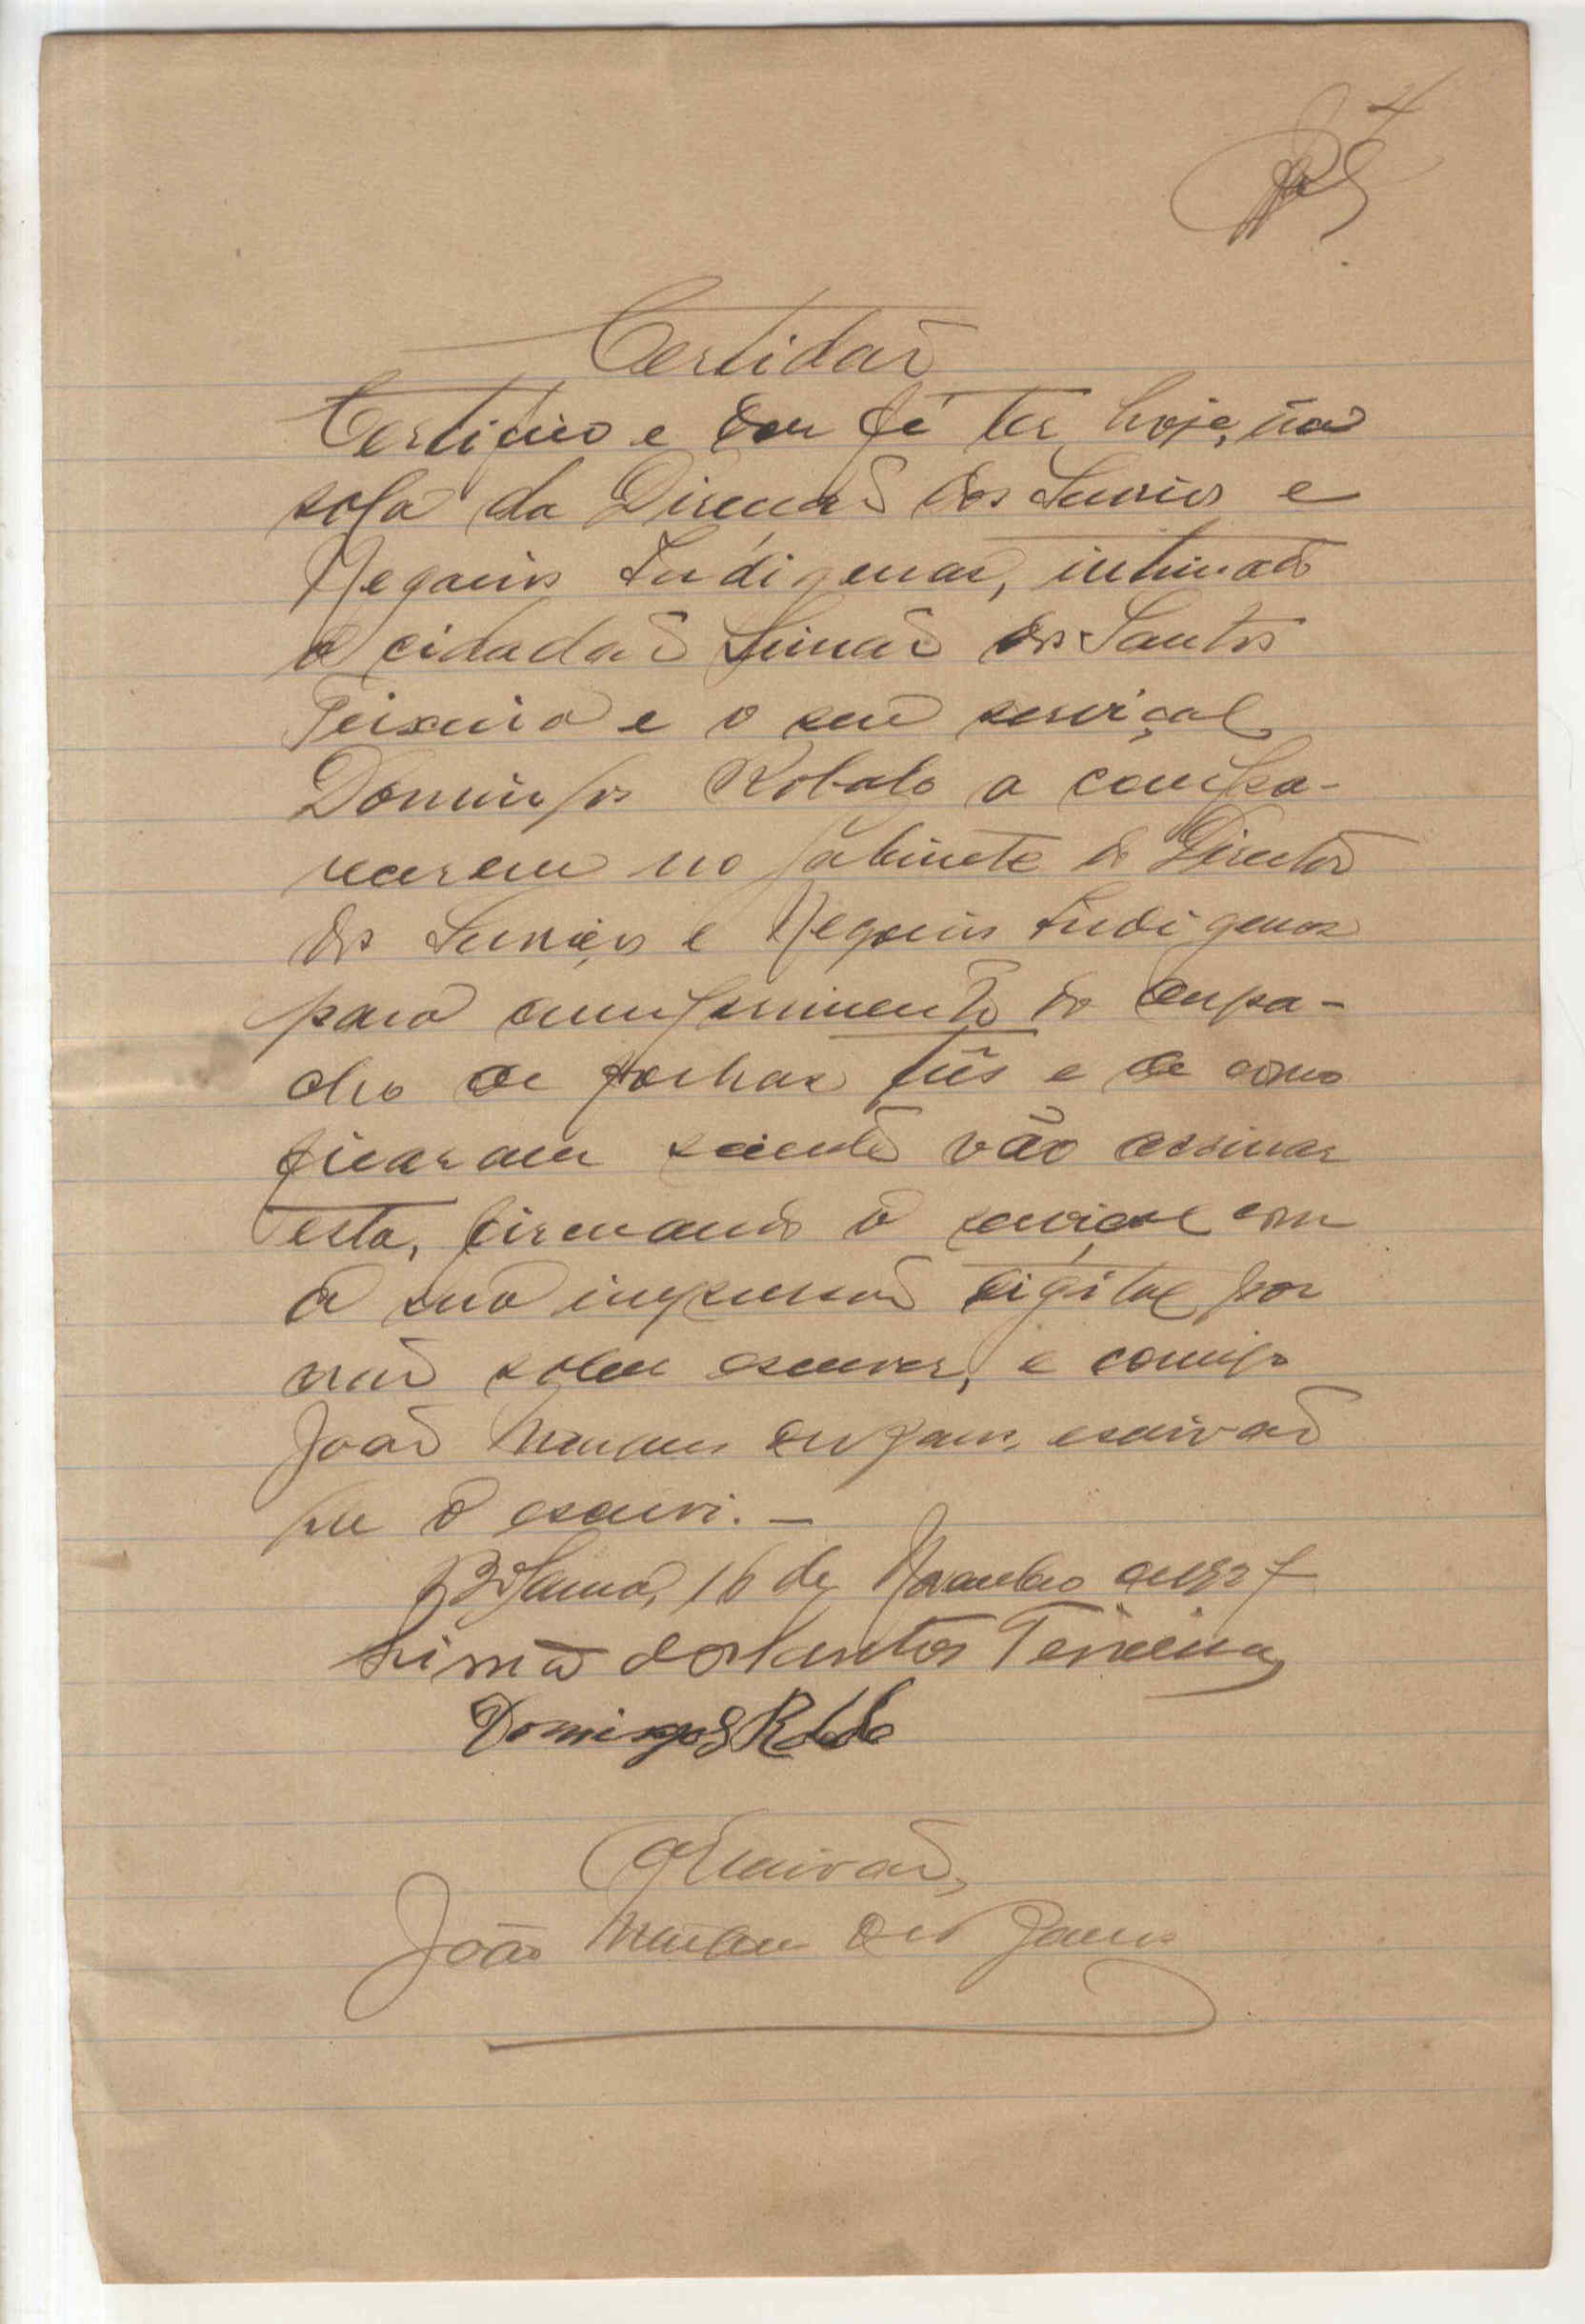 4
Certidão
Certifico e dou fé ter, hoje, na
sala da Direcção dos Serviços e
Negocios Indigenas, intimado
o cidadão Simão dos Santos
Teixeira e o seu serviçal
Domingos Robalo a compa-
recerem no gabinete do Director
dos Serviços e Negocios Indigenas
para cumprimento do despa-
cho de folhas três e de como
ficaram sciente vão assinar
esta, firmando o serviçal com
a sua impressão digital por
não saber escrever, e comigo
João escrivão
que o escrevi. —
Bolama, 16 de Novembro de 1927
Simão dos Santos Teixeira
Domingos Robalo
O Escrivão,
João